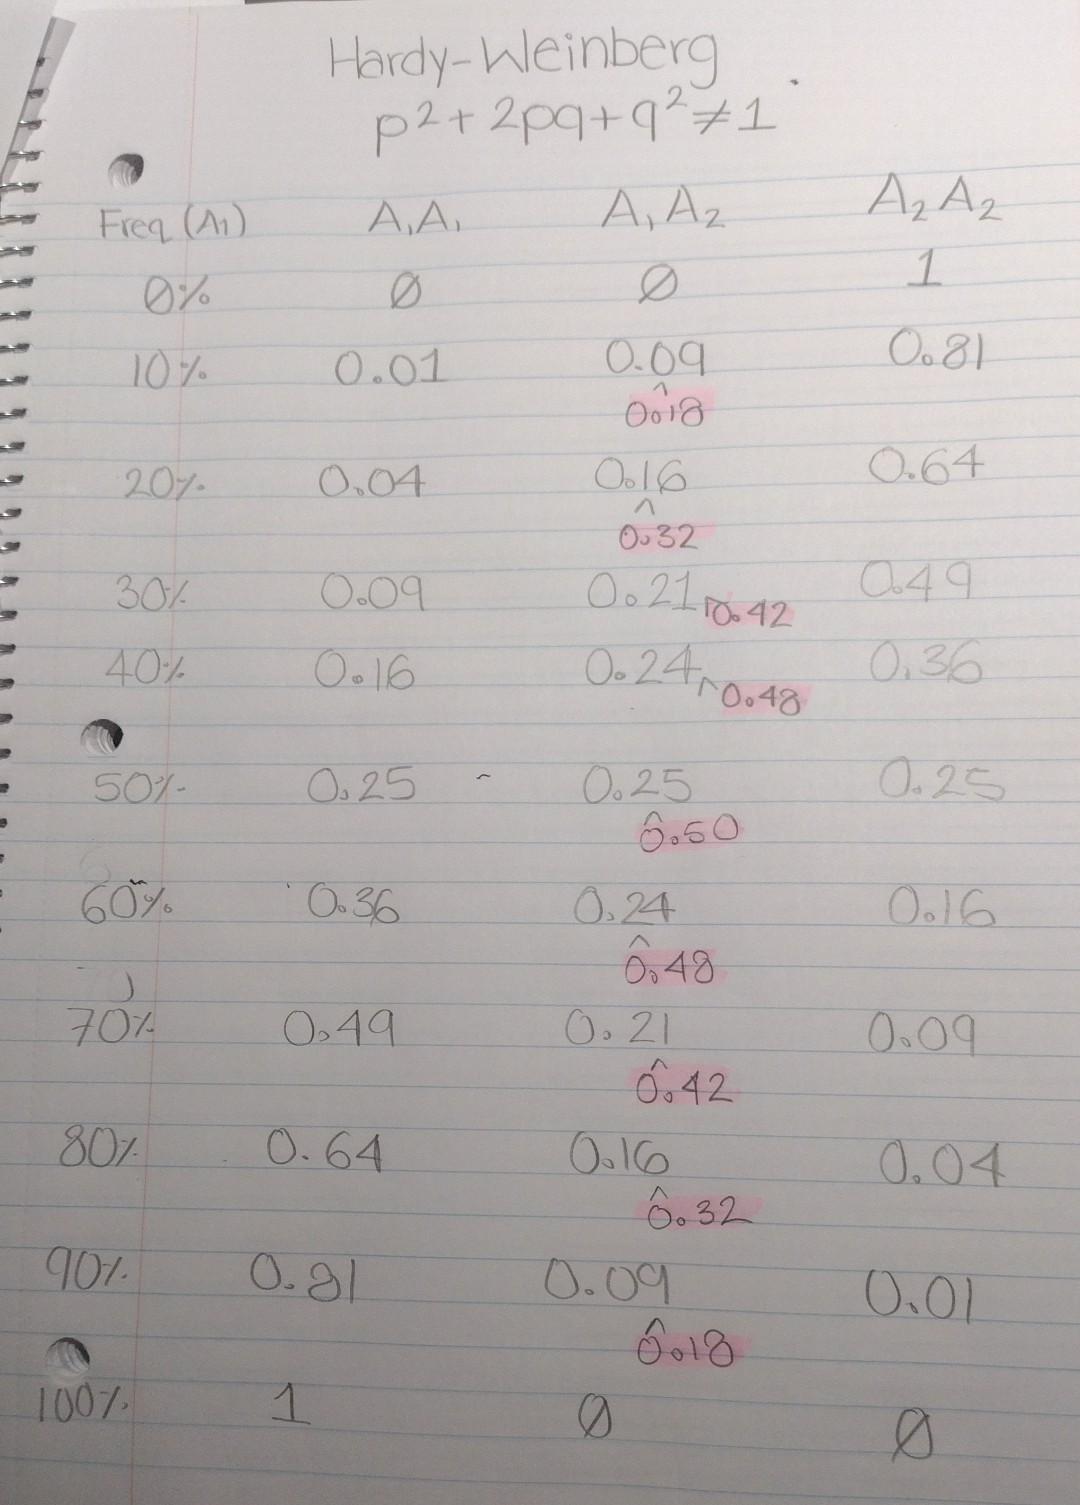 Hardy-Weinberg
p²+ 2pq+q²≠1
Freq (A1) A₁A₁ A₁A₂ A₂A₂
0% Ø Ø 1
10% 0.01 0.09 0.81
^
0.18
20% 0.04 0.16 0.64
^
0.32
30% 0.09 0.21 ^0.42 0.49
40% 0.16 0.24 ^0.48 0.36
50% 0.25 0.25 0.25
^
0.50
60% 0.36 0.24 0.16
^
0.48
70% 0.49 0.21 0.09
^
0.42
80% 0.64 0.16 0.04
^
0.32
90% 0.81 0.09 0.01
^
0.18
100% 1 Ø Ø